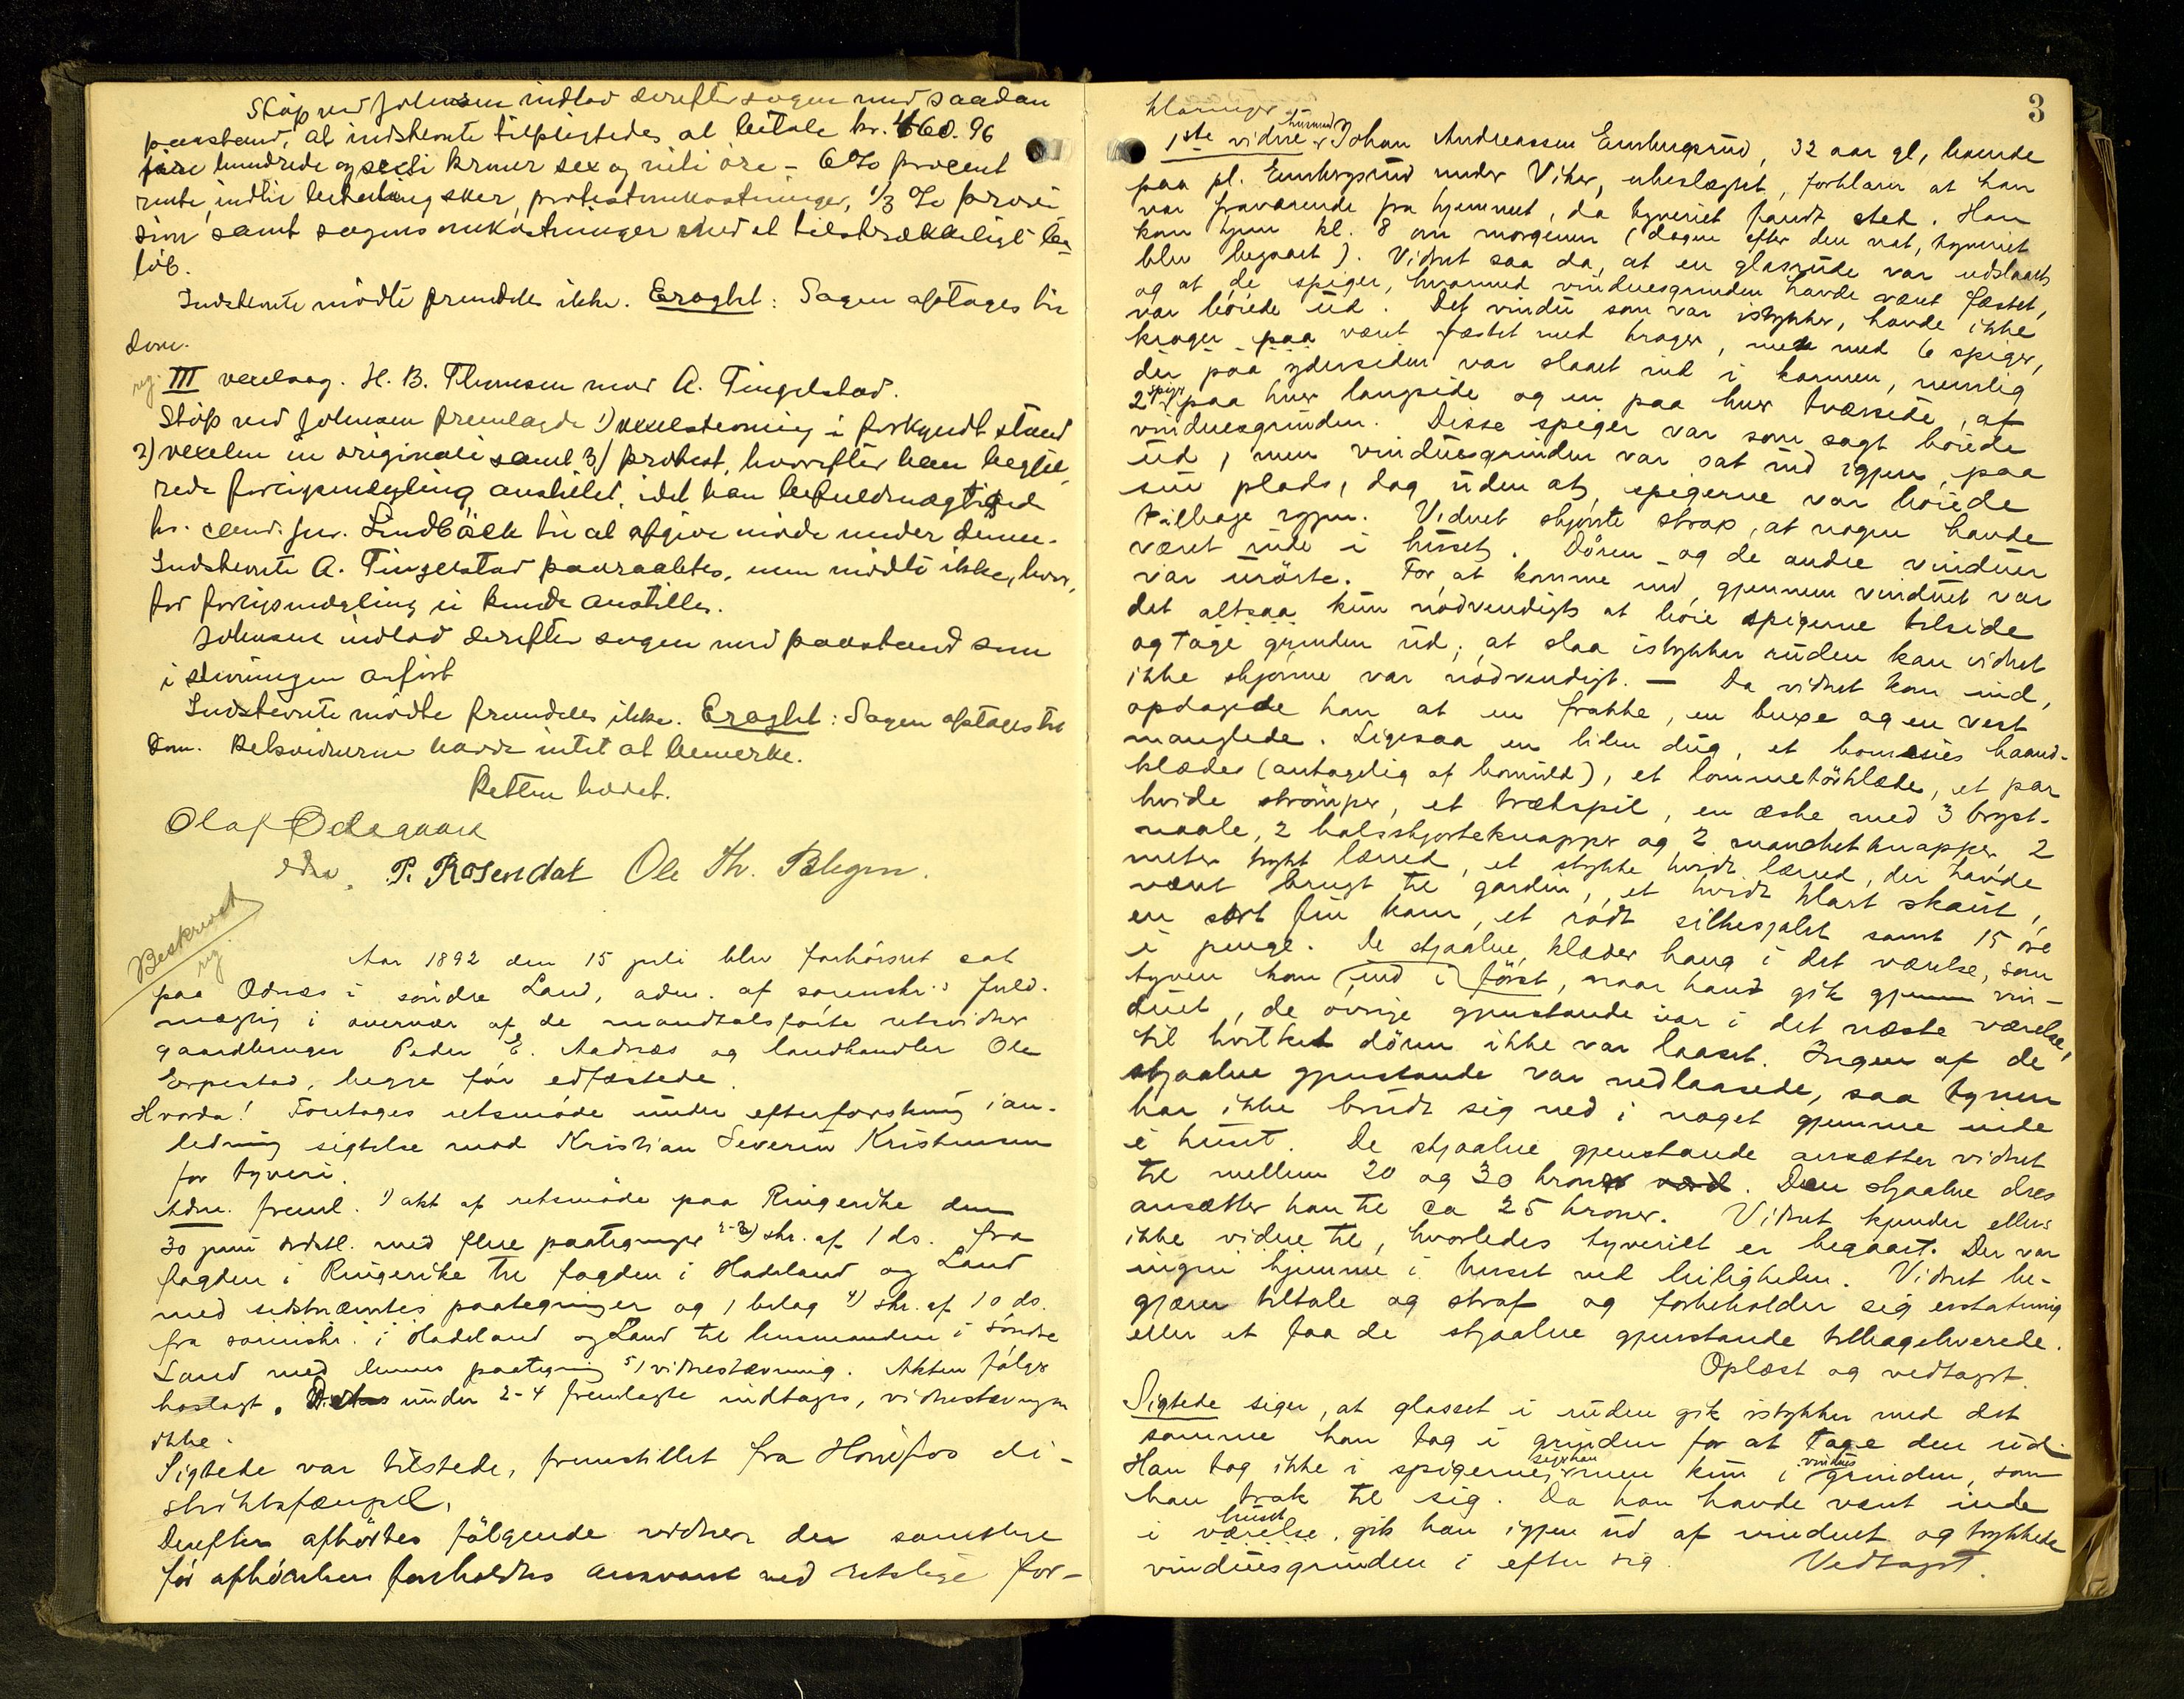 Stöp ved Johnsen indlod derefter sagen med saadan
paastand, at indstevnte tilpligtedes at betale kr. 460.96
fire hundrede og sexti kroner sex og niti öre - 6 % procent
rente indtil betaling sker, protestomkostninger, 1/3 % provi
sion samt sagens omkostninger med et tilstrækkeligt be
löb.
Indstevnte mödte fremdeles ikke. Eragtet: Sagen optages til
dom.
reg. III vexelsag. H. B. Thomsen mod A. Tingelstad.
Stöp ved Johnsen fremlagde 1) vexelstevning i forkyndt stand
2) vexelen in originali samt 3) protest, hvorefter han begjæ
rede forligsmægling anstillet, idet han befuldmægtiged
hr. cand. jur. Lindbäck til at afgive möde under denne.
Indstevnte A. Tingelstad paaraabtes, men mödte ikke, hvor
for forligsmægling ei kunde anstilles.
Johnsen indlod derefter sagen med paastand som
i stevningen anfört
Indstevnte mödte fremdeles ikke. Eragtet: Sagen optages til
Dom. Retsvidnerne havde intet at bemerke.
Retten hævet.
Olaf Ödegaard
P. Rosendal Ole Th. Blegen.
Beskrevet
reg.
Aar 1892 den 15 juli blev forhörsret sat
paa Odnæs i söndre Land, adm. af sorenskr.s fuld-
mægtig i overvær af de mandtalsförte retsvidner
gaardbruger Peder E. Aadnæs og landhandler Ole
Erpestad, begge för edfæstede.
Hvorda! Foretages retsmöde under efterforskning i an-
ledning sigtelse mod Kristian Severin Kristensen
for tyveri.
Adm. freml. 1) akt af retsmöde paa Ringerike den
30 juni sidstl. med flere paategninger 2-3) skr. af 1 ds. fra
fogden i Ringerike til fogden i Hadeland og Land
med sidstnævntes paategninger og 1 bilag 4) skr. af 10 ds.
fra sorenskr. i Hadeland og Land til lensmanden i söndre
Land med dennes paategning 5) vidnestævning. Akten fölger
hoslagt. De under 2-4 fremlagte indtages, vidnestævningen
ikke.
Sigtede var tilstede, fremstillet fra Hönefos di-
striktsfængsel.
Derefter afhörtes fölgende vidner der samtlige
för afhörelsen foreholdtes ansvaret ved retslige for-
3
klaringer
1ste vidne husmand Johan Andreassen Embugsrud, 32 aar gl, boende
paa pl. Embugsrud under Viker, ubeslægtet, forklarer at han
var fraværende fra hjemmet, da tyveriet fandt sted. Han
kom hjem kl. 8 om morgenen (dagen efter den nat, tyveriet
blev begaaet). Vidnet saa da, at en glasrude var udslaaet,
og at de spiger, hvormed vinduesgrinden havde været fæstet,
var böiede ud. Det vindu som var istykker, havde ikke
kroger paa været fæstet med kroger, men med 6 spiger,
der paa ydersiden var slaaet ind i karmen, nemlig
2 spiger paa hver langside og en paa hver tværside, af
vinduesgrinden. Disse spiger var som sagt böiede
ud, men vinduesgrinden var sat ind igjen, paa
sin plads, dog uden at spigerne var böiede
tilbage igjen. Vidnet skjönte strax, at nogen havde
været inde i huset. Dören og de andre vinduer
var urörte. For at komme ind gjennem vinduet var
det altsaa kun nödvendigt at böie spigerne tilside
og tage grinden ud; at slaa istykker ruden kan vidnet
ikke skjönne var nödvendigt. — Da vidnet kom ind,
opdagede han at en frakke, en buxe og en vest
manglede. Ligesaa en liden dug, et bomesies haand-
klæde (antagelig af bomuld), et lommetörklæde, et par
hvide strömper, et trækspil, en æske med 3 bryst-
naale, 2 halsskjorteknapper og 2 manchetknapper, 2
meter trykt lærred, et stykke hvidt lærred, der havde
været brugt til gardin, et hvidt klart skaut,
en sort fin kam, et rödt silkesjalet samt 15 öre
i penge. De stjaalne klæder hang i det værelse, som
tyven kom ind i först, naar hand gik gjennem vin-
duet, de övrige gjenstande var i det næste værelse,
til hvilket dören ikke var laaset. Ingen af de
stjaalne gjenstande var nedlaasede, saa tyven
har ikke brudt sig ned i noget gjemme inde
i huset. De stjaalne gjenstande ansætter vidnet
til mellem 20 og 30 kroner værd. Den stjaalne dres
ansætter han til ca 25 kroner. Vidnet kjender ellers
ikke videre til, hvorledes tyveriet er begaaet. Der var
ingen hjemme i huset ved leiligheden. Vidnet be-
gjærer tiltale og straf og forbeholder sig erstatning
eller at faa de stjaalne gjenstande tilbageleverede.
Oplæst og vedtaget.
Sigtede siger, at glasset i ruden gik istykker med det
samme han tog i grinden for at tage den ud.
Han tog ikke i spigerne, siger han men kun i vindus grinden, som
han trak til sig. Da han havde været inde
i værelse huset, gik han igjen ud af vinduet og trykkede
vinduesgrinden i efter sig. Vedtaget.